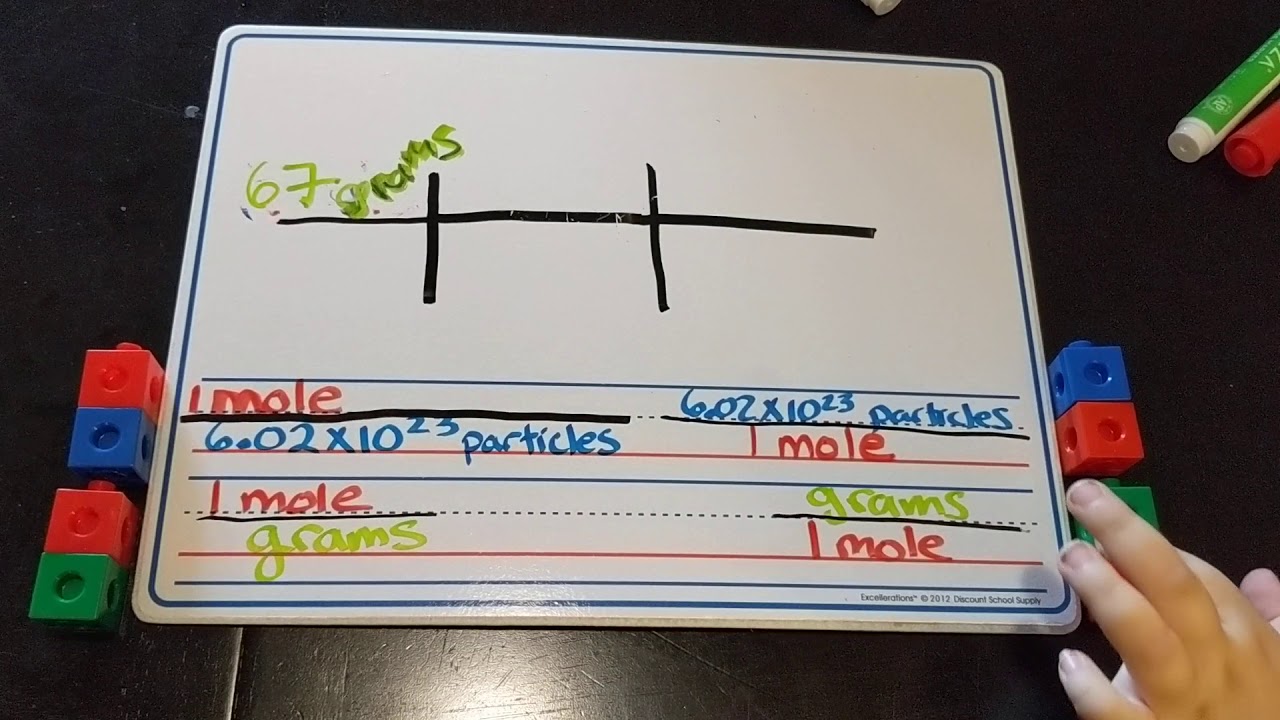 67 grams
1 mole
6.02x10²³ particles
6.02x10²³ particles
1 mole
1 mole
grams
grams
1 mole
Excellerations™ © 2012 Discount School Supply